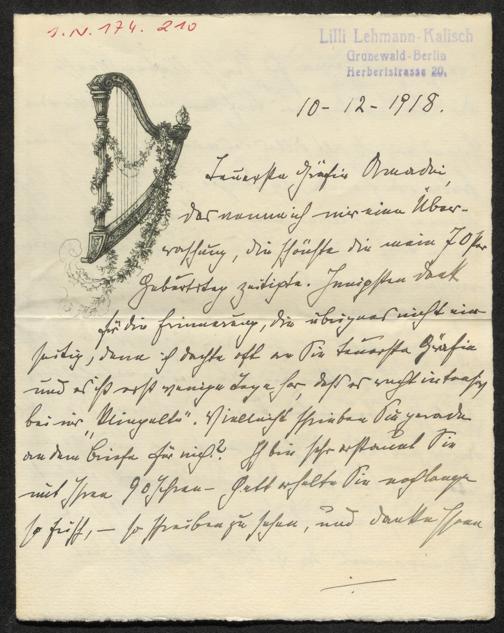 I.N. 174.210
Lilli Lehmann-Kalisch
Grunewald-Berlin
Herbertstrasse 20.
10-12-1918.
Teuerste Gräfin Amadei,
das nenne ich mir eine Über-
raschung, die schönste die mein 70ster
Geburtstag zeitigte. Innigsten Dank
für die Erinnerung, die übrigens nicht ein-
seitig, denn ich dachte oft an Sie teuerste Gräfin
und es ist erst wenige Tage her, daß es recht intensiv
bei mir „klingelte". Vielleicht schrieben Sie gerade
an dem Briefe für mich? Ich bin sehr erstaunt Sie
mit Ihren 90 Jahren – Gott erhalte Sie noch lange
so frisch, – so schreiben zu sehen, und danke Ihnen